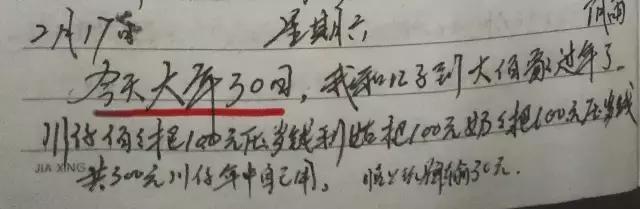 2月17日 星期六
今天大年30日，我和儿子到大伯家过年了。
川仔伯给把100元压岁钱 把100元奶给把100元压岁钱
JIA XING 共300元川仔年中自己用。 晚上玩牌输30元.